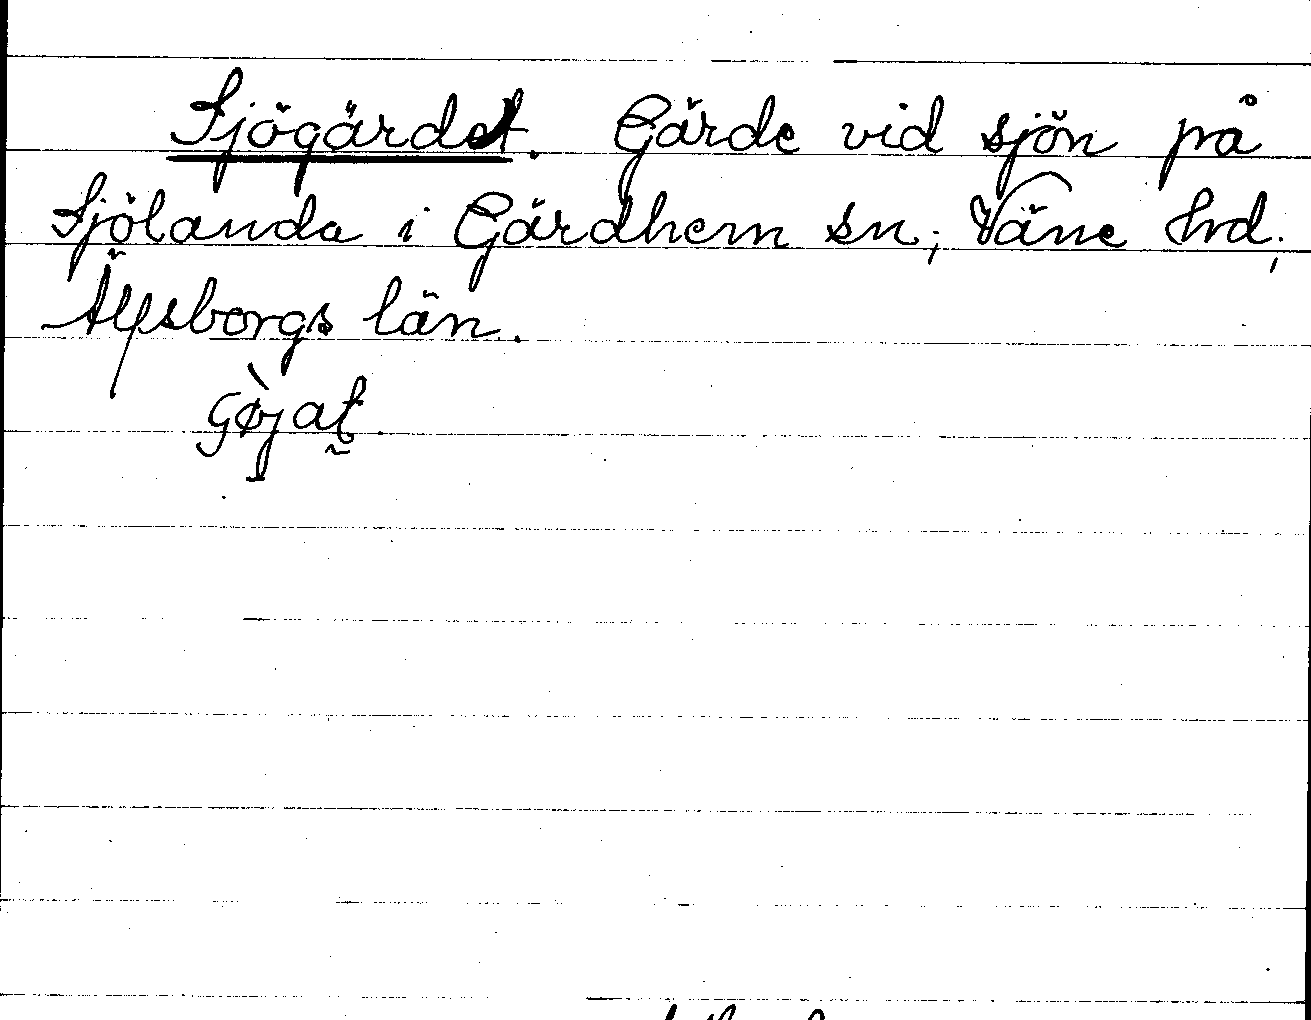 Sjögärdet. Gärde vid sjön på
Sjölanda i Gärdhem sn, Väne hrd,
Älfsborgs län.